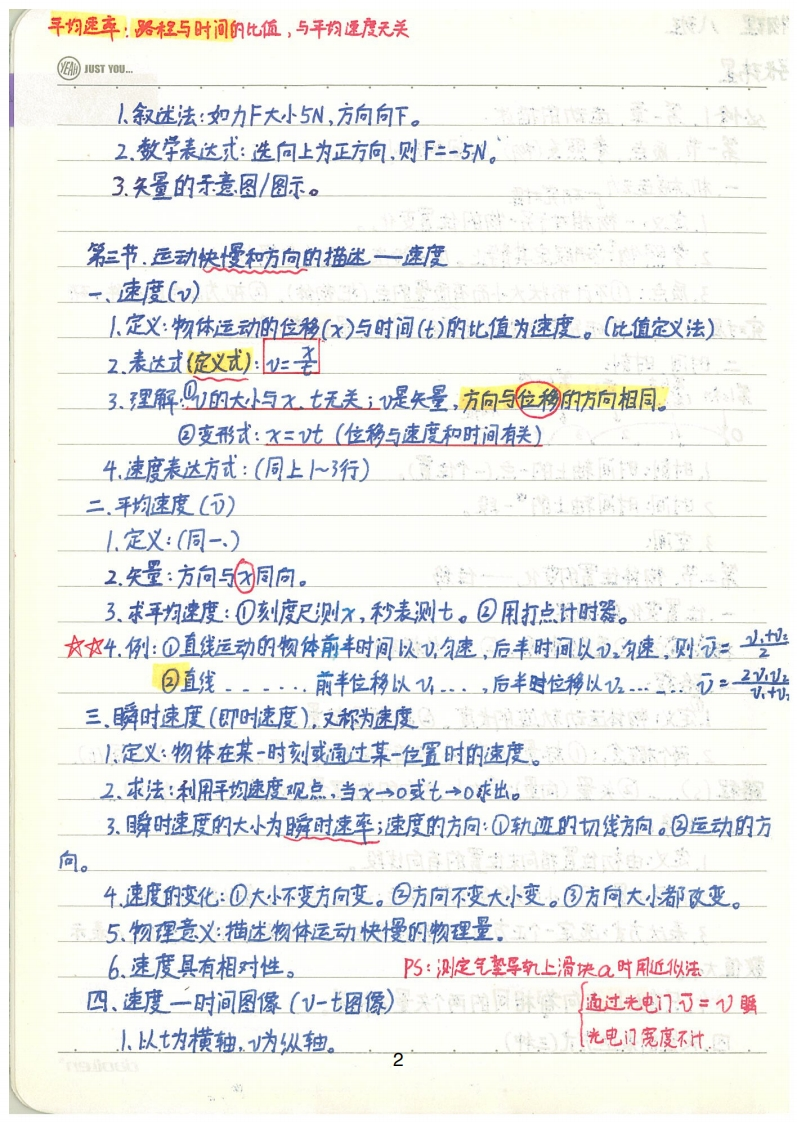 平均速率：路程与时间的比值，与平均速度无关
YEAH JUST YOU...
1.叙述法：如力F大小5N，方向向下。
2.数学表达式：选向上为正方向，则F=-5N。
3.矢量的示意图/图示。
第三节.运动快慢和方向的描述——速度
一、速度(v)
1.定义：物体运动的位移(x)与时间(t)的比值为速度。(比值定义法)
2.表达式(定义式)：v=x/t
3.理解：①v的大小与x、t无关；v是矢量，方向与位移的方向相同。
②变形式：x=vt (位移与速度和时间有关)
4.速度表达方式：(同上1~3行)
二、平均速度(v̄)
1.定义：(同一、)
2.矢量：方向与x同向。
3.求平均速度：①刻度尺测x，秒表测t。②用打点计时器。
☆☆4.例：①直线运动的物体前半时间以v₁匀速，后半时间以v₂匀速，则v̄=(v₁+v₂)/2
②直线......前半位移以v₁...，后半时位移以v₂......v̄=2v₁v₂/(v₁+v₂)
三、瞬时速度(即时速度)，又称为速度
1.定义：物体在某一时刻或通过某一位置时的速度。
2.求法：利用平均速度观点，当x→0或t→0求出。
3.瞬时速度的大小为瞬时速率；速度的方向：①轨迹的切线方向。②运动的方
向。
4.速度的变化：①大小不变方向变。②方向不变大小变。③方向大小都改变。
5.物理意义：描述物体运动快慢的物理量。
6.速度具有相对性。
PS：测定气垫导轨上滑块a时用近似法
四、速度—时间图像(v-t图像)
通过光电门v̄=v瞬
光电门宽度不计
1.以t为横轴，v为纵轴。
2